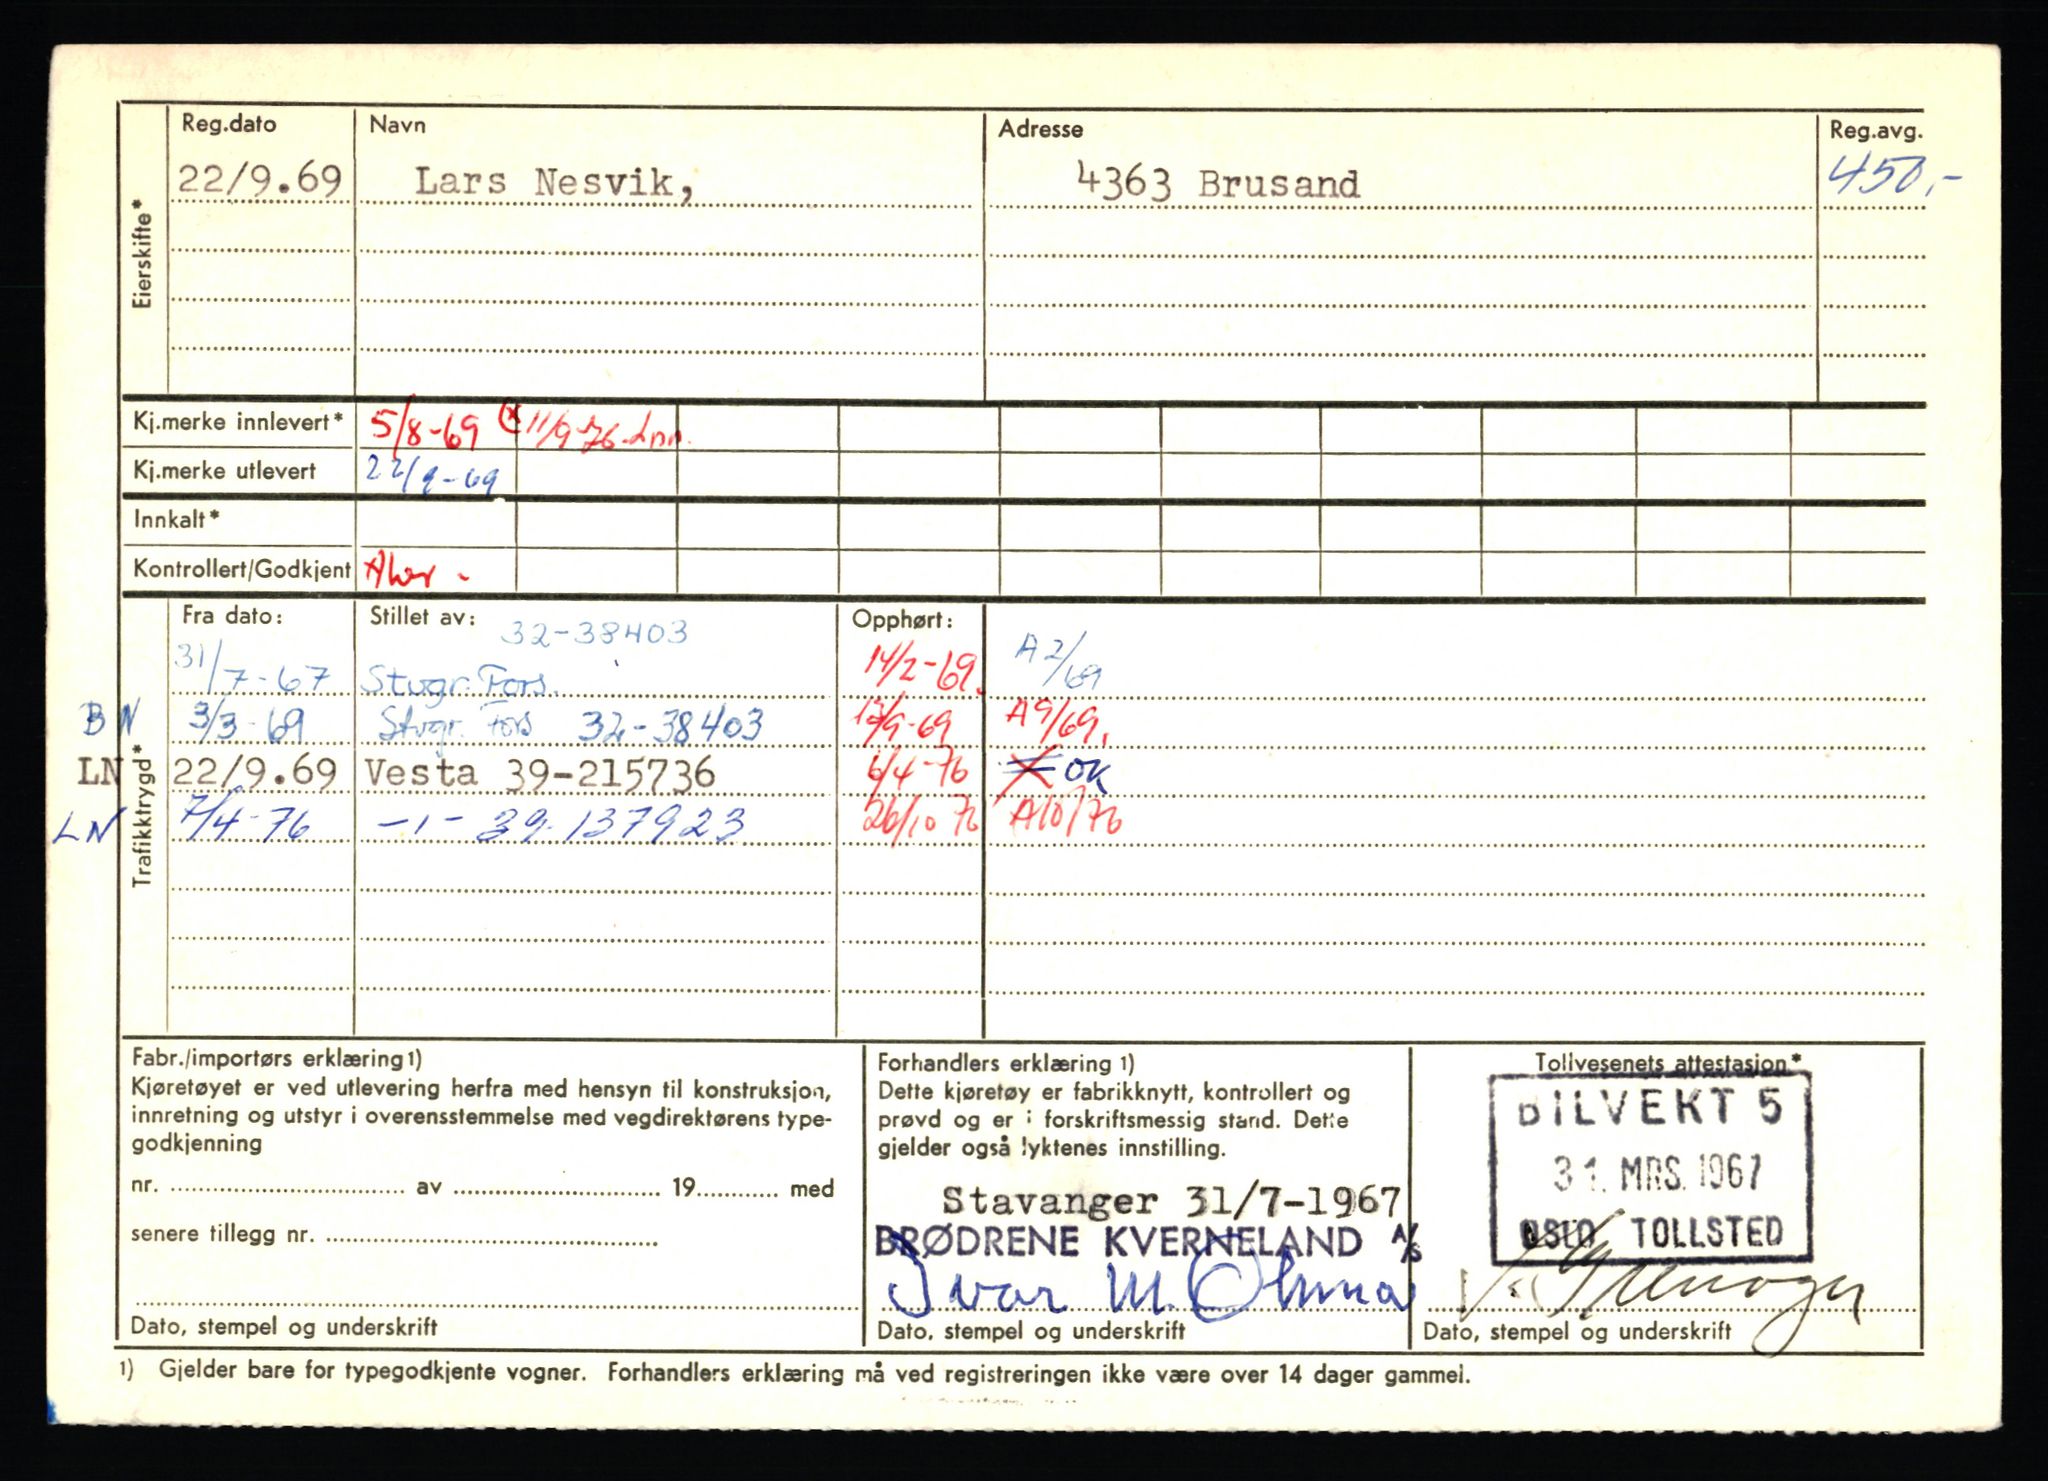 Reg.dato Navn Adresse Reg.avg.
22/9.69 Lars Nesvik, 4363 Brusand 450,-
Eierskifte*
Kj.merke innlevert* 5/8-69 (x 11/9-76
Kj.merke utlevert 22/9-69
Innkalt*
Kontrollert/Godkjent
Trafikktrygd*
Fra dato: Stillet av: 32-38403 Opphørt:
31/7-67 Stvgr. Fors. 14/2-69. A 2/69
BN 3/3-69 Stvgr. Fors 32-38403 12/9-69 A 9/69.
LN 22/9.69 Vesta 39-215736 6/4-76 OK
LN 7/4-76 -1- 39-137923 26/10 76 A10/76
Fabr./importørs erklæring 1)
Kjøretøyet er ved utlevering herfra med hensyn til konstruksjon,
innretning og utstyr i overensstemmelse med vegdirektørens type-
godkjenning
nr. av 19 med
senere tillegg nr.
Dato, stempel og underskrift
Forhandlers erklæring 1)
Dette kjøretøy er fabrikknytt, kontrollert og
prøvd og er i forskriftsmessig stand. Dette
gjelder også lyktenes innstilling.
Stavanger 31/7-1967
BRØDRENE KVERNELAND A/S
Ivar M.
Dato, stempel og underskrift
Tollvesenets attestasjon*
BILVEKT 5
31. MRS. 1967
OSLO TOLLSTED
Dato, stempel og underskrift
1) Gjelder bare for typegodkjente vogner. Forhandlers erklæring må ved registreringen ikke være over 14 dager gammel.